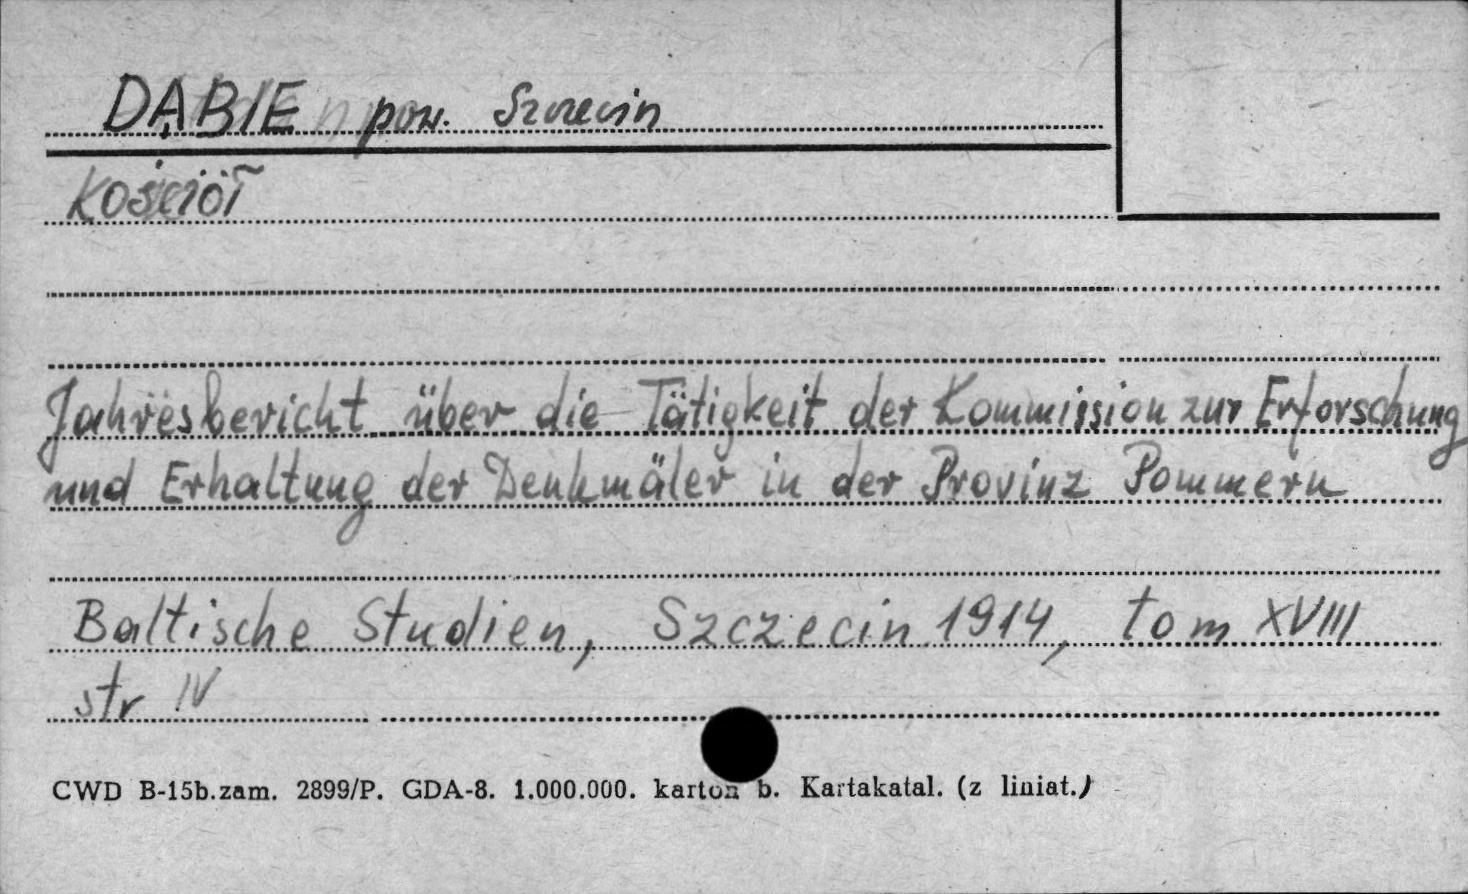 DĄBIE pow. Szczecin
Kościół
Jahresbericht über die Tätigkeit der Kommission zur Erforschung
und Erhaltung der Denkmäler in der Provinz Pommern
Baltische Studien, Szczecin 1914, tom XVIII
str IV
CWD B-15b.zam. 2899/P. GDA-8. 1.000.000. karton b. Kartakatal. (z liniat.)